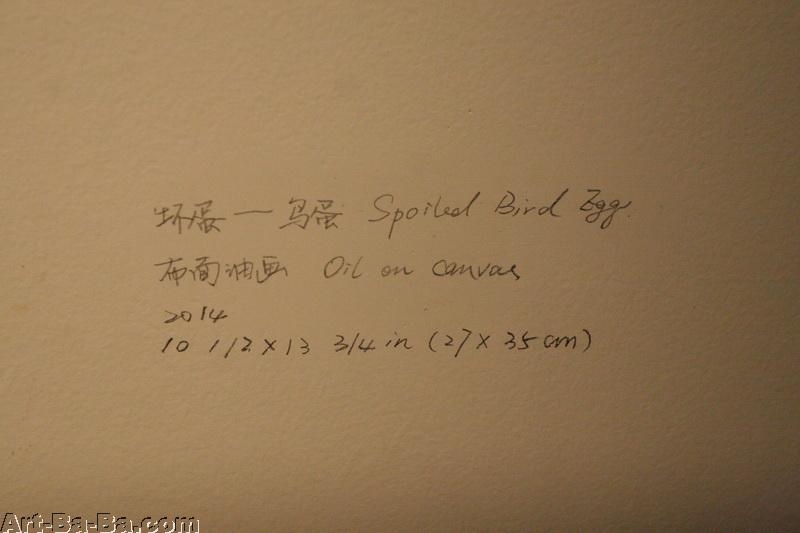 坏蛋一鸟蛋 Spoiled Bird Egg
布面油画 Oil on canvas
2014
10 1/2 x 13 3/4 in (27 x 35 cm)
Art-Ba-Ba.com